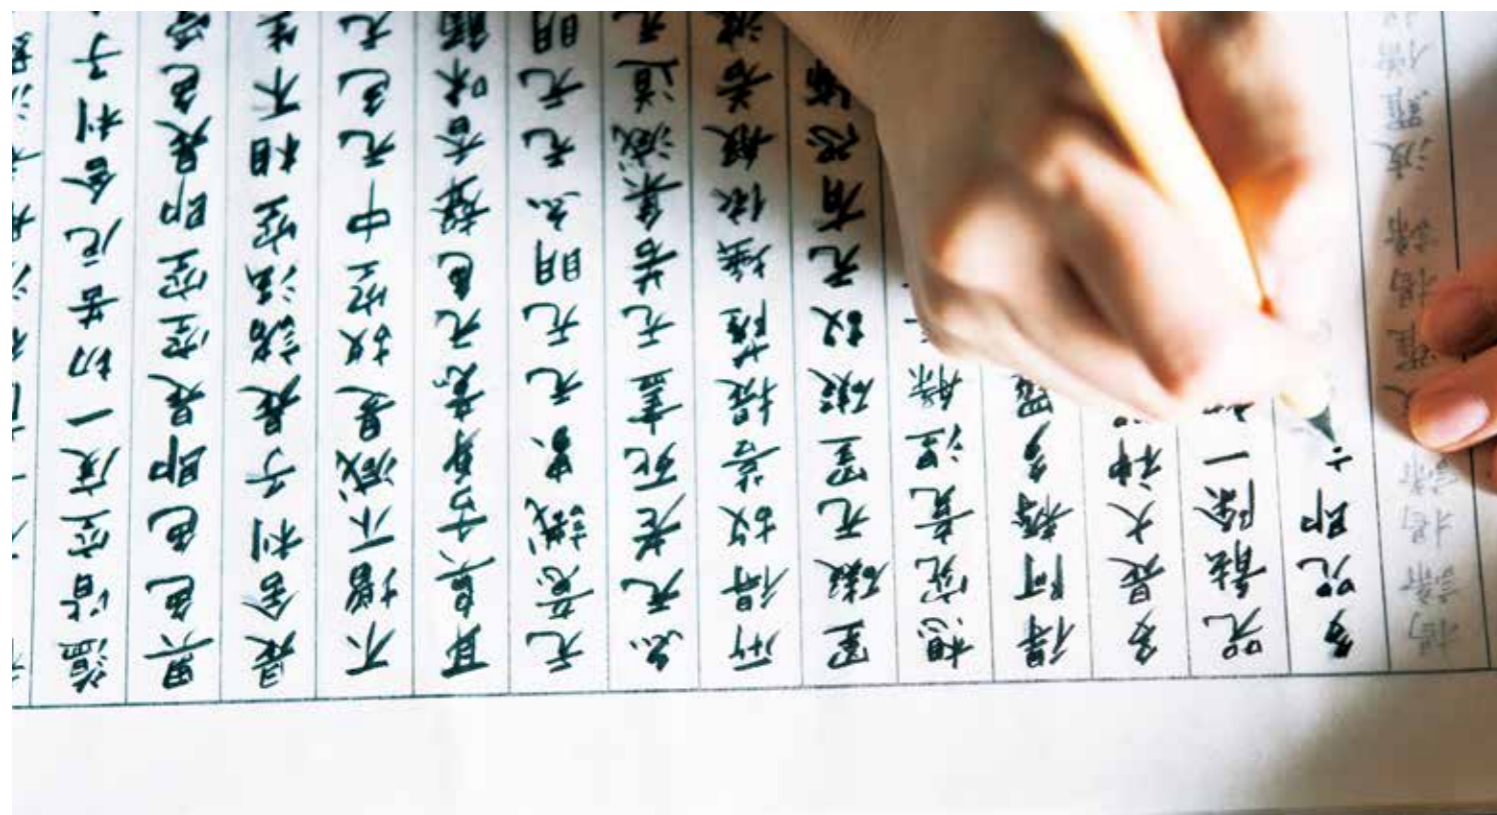 蘊皆空度一切苦厄舍利子
異色色即是空空即是色受
是舍利子是諸法空相不生
不增不減是故空中无色无
耳鼻舌身意无色聲香味觸
无意識界无无明亦无无明
亦无老死盡无苦集滅道无
所得故菩提薩埵依般若波
罣礙无罣礙故无有恐怖
想究竟涅槃
得阿耨多羅
多是大神
咒能除一
多咒即
揭諦揭諦羅揭諦波羅僧揭